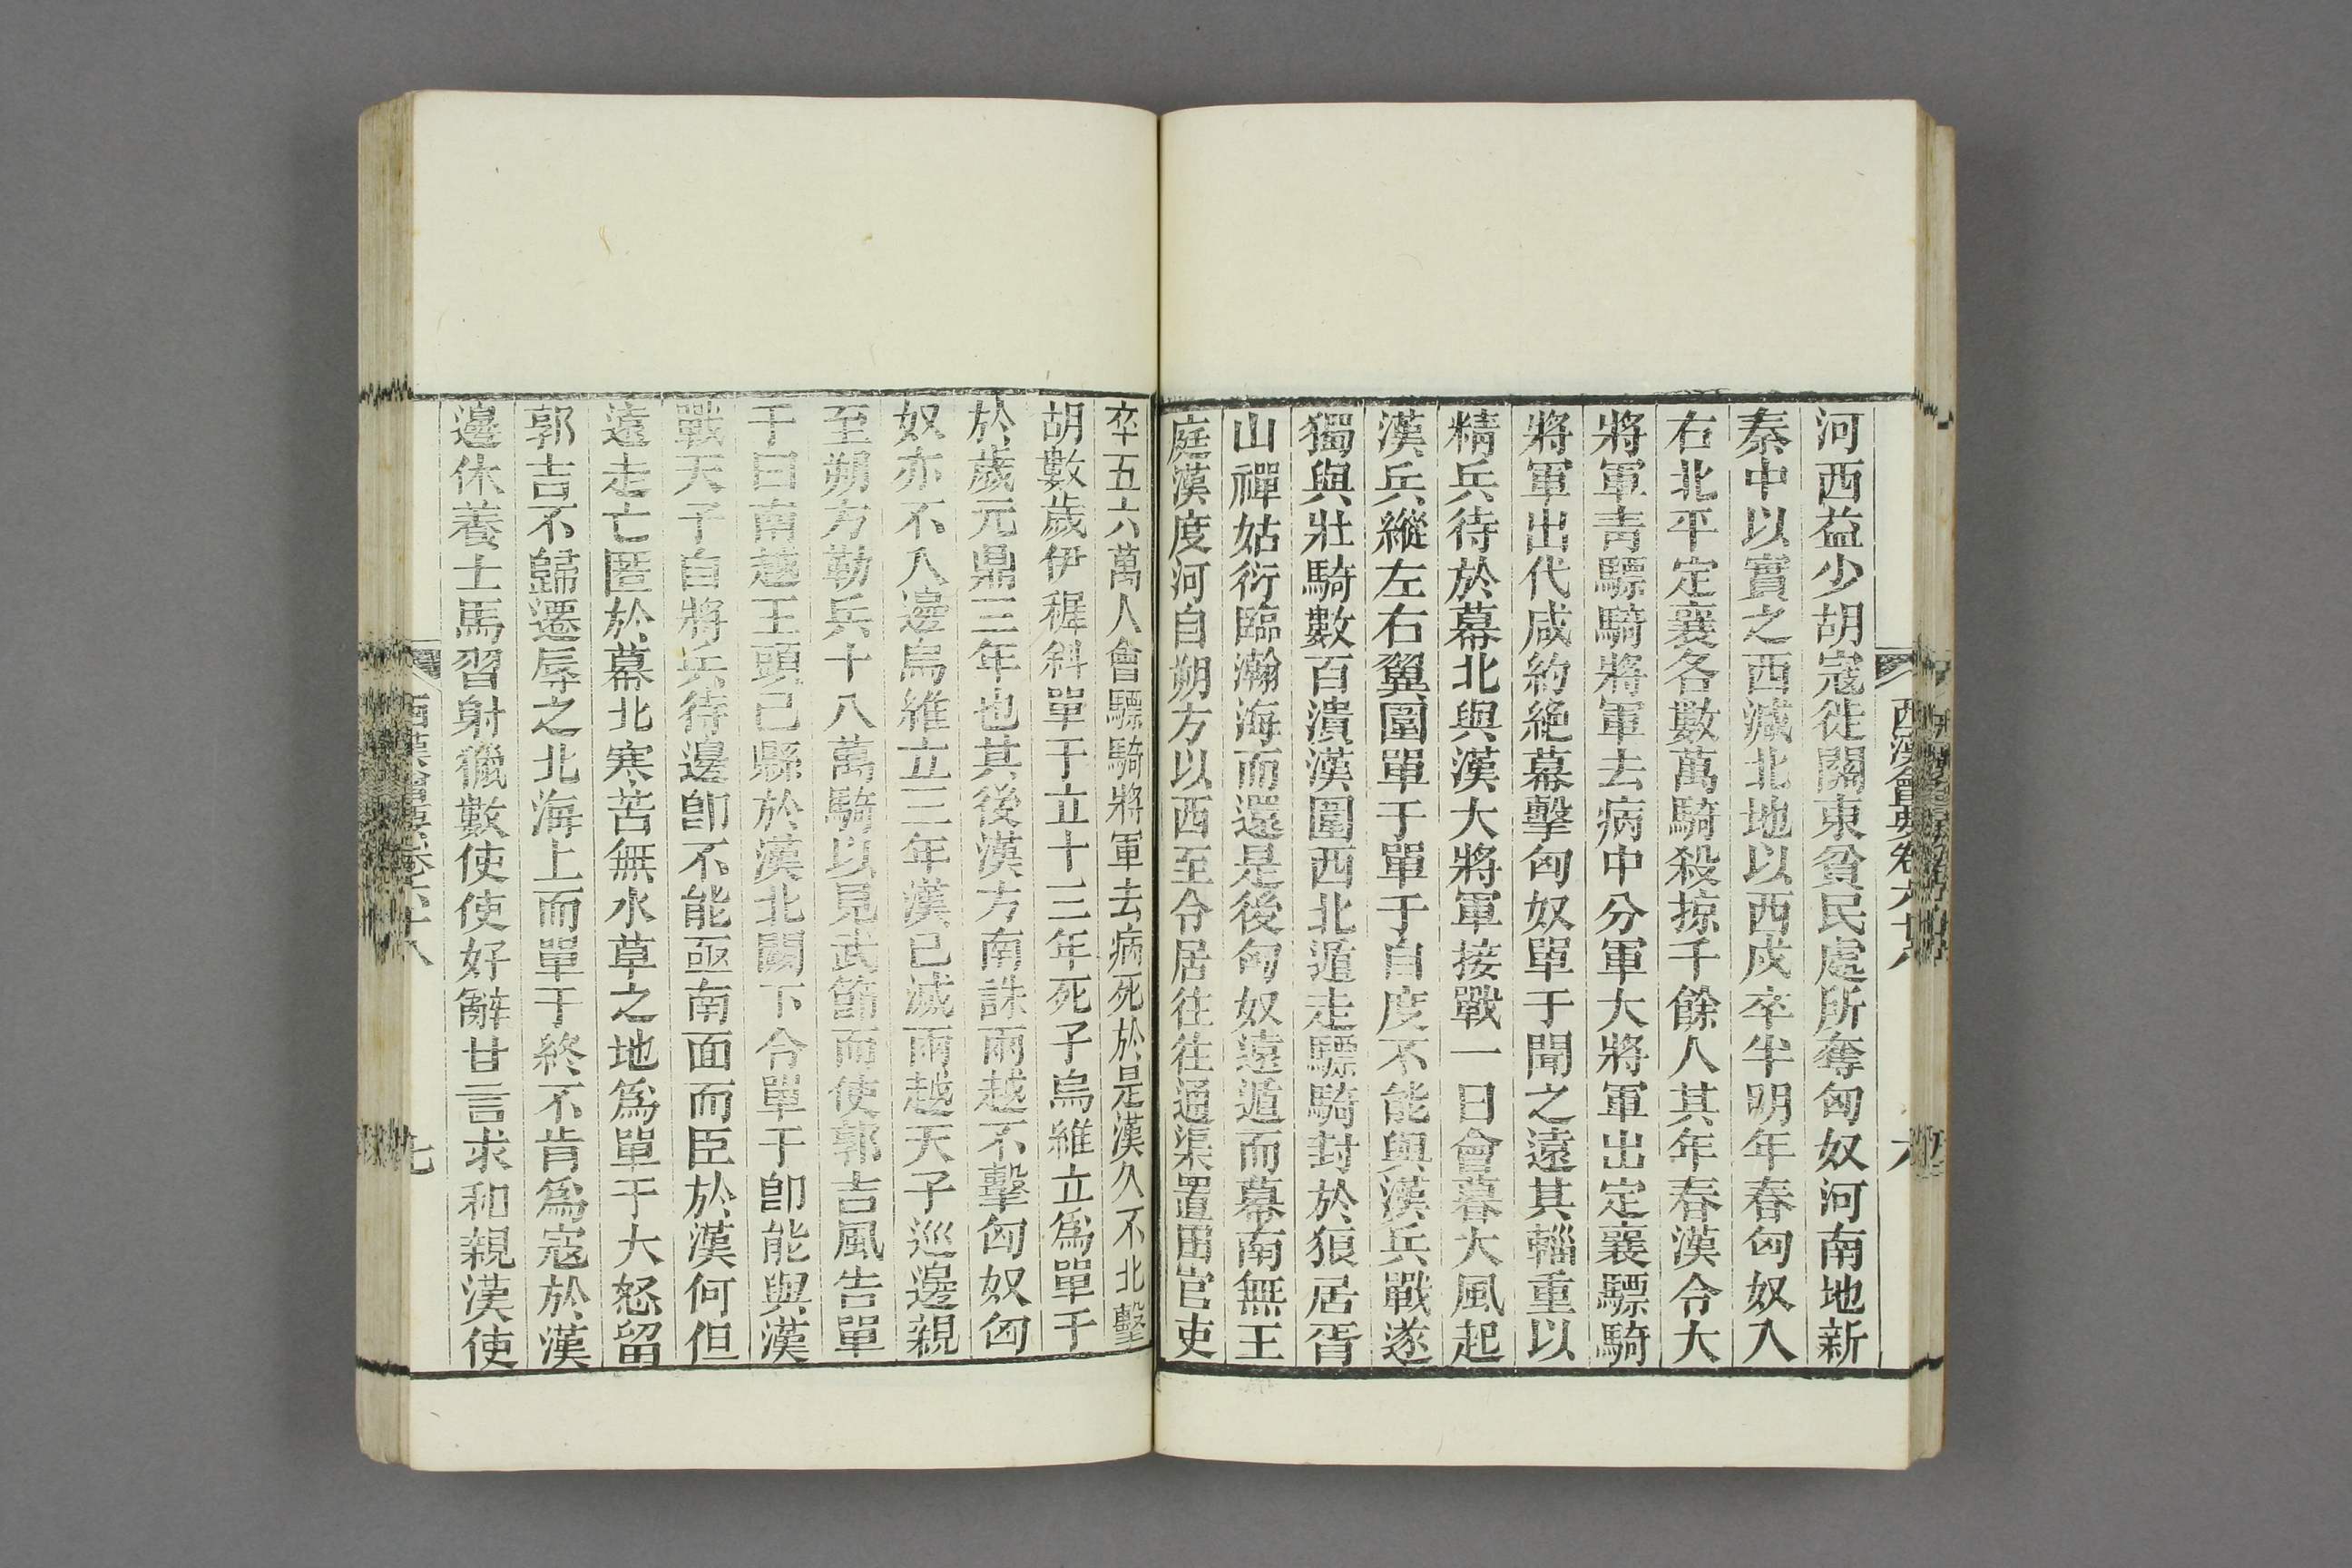 西漢會要卷六十八
六
河西益少胡寇徙關東貧民處所奪匈奴河南地新
秦中以實之西減北地以西戍卒半明年春匈奴入
右北平定襄各數萬騎殺掠千餘人其年春漢令大
將軍靑驃騎將軍去病中分軍大將軍出定襄驃騎
將軍出代咸約絕幕擊匈奴單于聞之遠其輜重以
精兵待於幕北與漢大將軍接戰一日會暮大風起
漢兵縱左右翼圍單于單于自度不能與漢兵戰遂
獨與壯騎數百潰漢圍西北遁走驃騎封於狼居胥
山禪姑衍臨瀚海而還是後匈奴遠遁而幕南無王
庭漢度河自朔方以西至令居往往通渠置田官吏
卒五六萬人會驃騎將軍去病死於是漢久不北擊
胡數歲伊穉斜單于立十三年死子烏維立爲單于
於歲元鼎三年也其後漢方南誅兩越不擊匈奴匈
奴亦不入邊烏維立三年漢已滅兩越天子巡邊親
至朔方勒兵十八萬騎以見武節而使郭吉風告單
于曰南越王頭已縣於漢北闕下今單于卽能與漢
戰天子自將兵待邊卽不能亟南面而臣於漢何但
遠走亡匿於幕北寒苦無水草之地爲單于大怒留
郭吉不歸遷辱之北海上而單于終不肯爲寇於漢
邊休養士馬習射獵數使使好辭甘言求和親漢使
西漢會要卷六十八
七